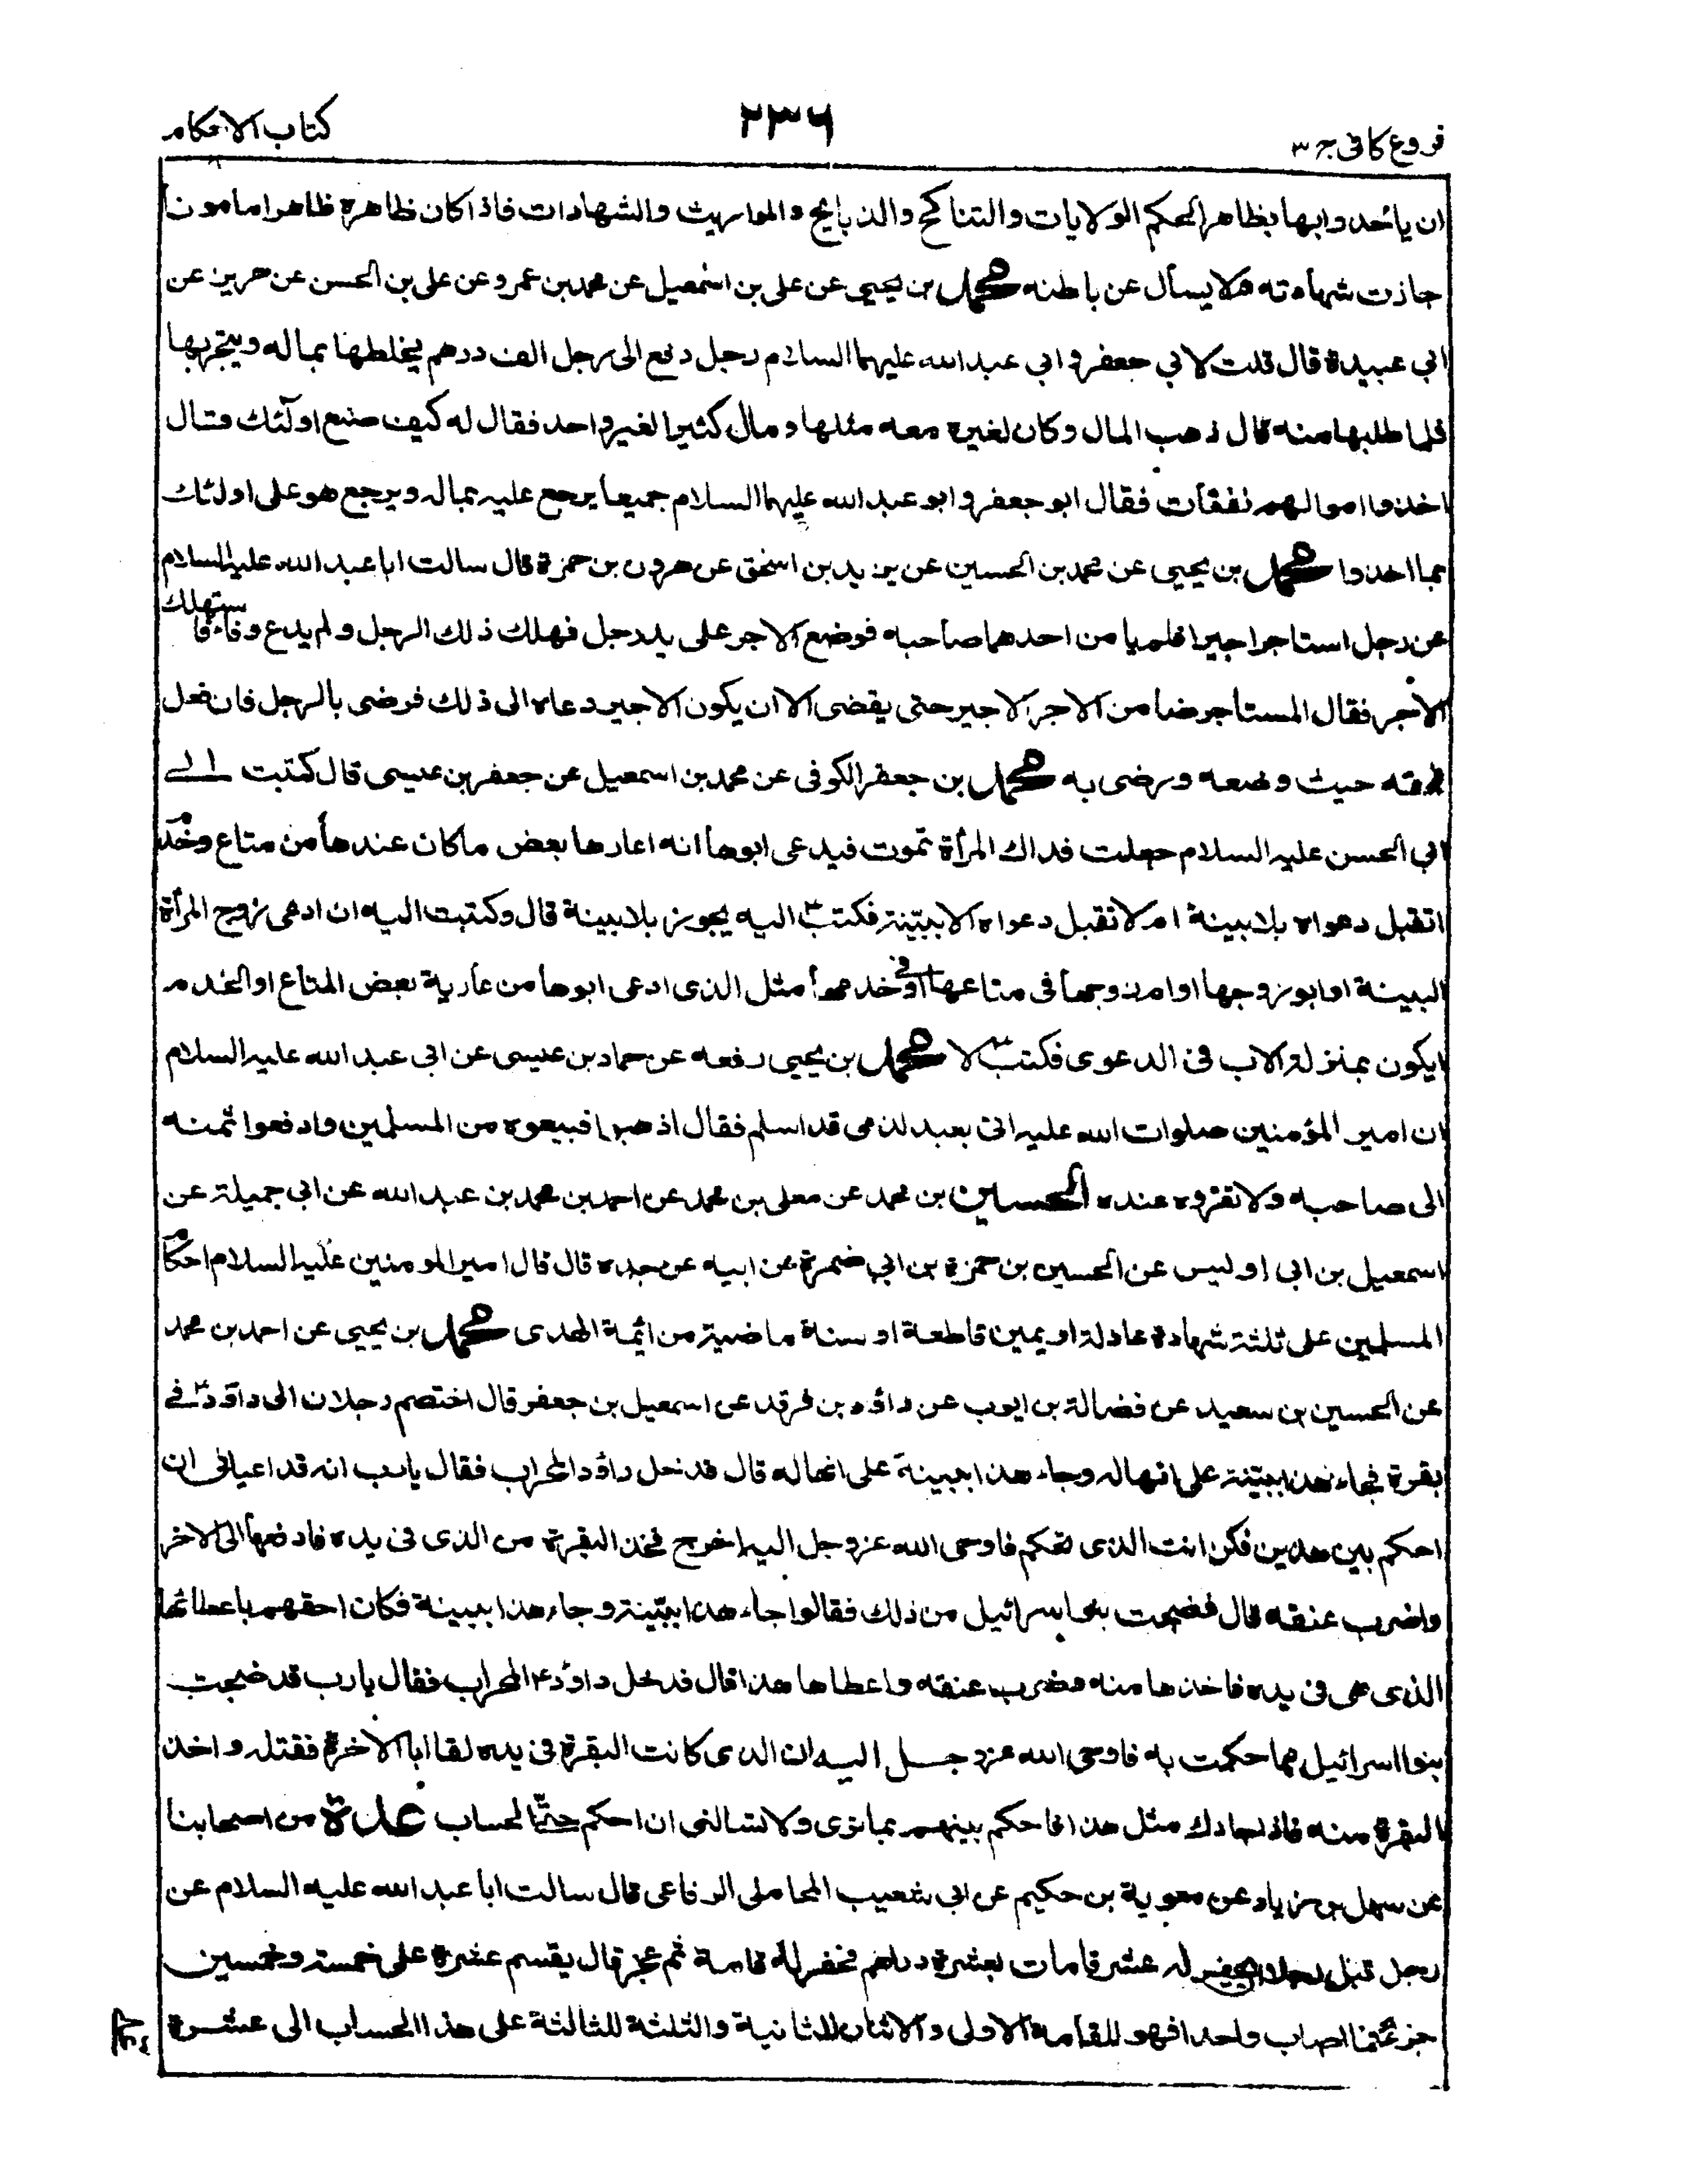 فروع كافى ج ٣
٢٣٦
كتاب الاحكام
ان ياخدوابها بظاهر الحكم الولايات والتناكح والذبايح والمواريث والشهادات فاذا كان ظاهره ظاهرا مامونا
جازت شهادته ولا يسأل عن باطنه محمد بن يحيى عن على بن اسمعيل عن محمد بن عمرو عن على بن الحسن عن حريز عن
ابي عبيدة قال قلت لابي جعفر و ابي عبد الله عليهما السلام رجل دفع الى رجل الف درهم يخلطها بماله ويتجر بها
فلما طلبها منه قال ذهب المال وكان لغيره معه مثلها ومال كثير لغير واحد فقال له كيف صنع اولئك قال
اخذوا اموالهم نفقات فقال ابو جعفر و ابو عبد الله عليهما السلام جميعا يرجع عليه بماله ويرجع هو على اولئك
بما اخذوا محمد بن يحيى عن محمد بن الحسين عن يزيد بن اسحق عن هرون بن حمزة قال سالت ابا عبد الله عليه السلام
عن رجل استاجر اجيرا فلم يا من احدهما صاحبه فوضع الاجر على يد رجل فهلك ذلك الرجل ولم يدع وفاء فاستهلك
الاجر فقال المستاجر ضامن الاجر الاجير حتى يقضى الا ان يكون الاجير دعاه الى ذلك فرضى بالرجل فان فعل
فحقه حيث وضعه ورضى به محمد بن جعفر الكوفى عن محمد بن اسمعيل عن جعفر بن عيسى قال كتبت الى
ابي الحسن عليه السلام جعلت فداك المرأة تموت فيدعى ابوها انه اعارها بعض ما كان عندها من متاع وخدم
اتقبل دعواه بلا بينة ام لا تقبل دعواه الا ببينة فكتب اليه يجوز بلا بينة قال وكتبت اليه ان ادعى زوج المرأة
البينة او ابو زوجها او ام زوجها فى متاعها او فى خدمها مثل الذى ادعى ابوها من عارية بعض المتاع او الخدم
ايكون بمنزلة الاب فى الدعوى فكتب لا محمد بن يحيى رفعه عن حماد بن عيسى عن ابى عبد الله عليه السلام
ان امير المؤمنين صلوات الله عليه اتى بعبد لذمى قد اسلم فقال اذهبوا فبيعوه من المسلمين وادفعوا ثمنه
الى صاحبه ولا تقروه عنده الحسين بن محمد عن معلى بن محمد عن احمد بن محمد بن عبد الله عن ابى جميلة عن
اسمعيل بن ابى اوليس عن الحسين بن حمزة بن ابى ضمرة عن ابيه عن جده قال قال امير المومنين عليه السلام احكام
المسلمين على ثلثة شهادة عادلة او يمين قاطعة او سنة ماضية من ائمة الهدى محمد بن يحيى عن احمد بن محمد
عن الحسين بن سعيد عن فضالة بن ايوب عن داؤد بن فرقد عن اسمعيل بن جعفر قال اختصم رجلان الى داؤد فى
بقرة فجاء هذا ببينة على انها له وجاء هذا ببينة على انها له قال فدخل داؤد المحراب فقال يا رب انه قد اعيانى ان
احكم بين هذين فكن انت الذى تحكم فاوحى الله عز وجل اليه اخرج فخذ البقرة من الذى فى يده فادفعها الى الاخر
واضرب عنقه قال فضجت بنوا اسرائيل من ذلك فقالوا جاء هذا ببينة وجاء هذا ببينة فكان احقهم باعطائها
الذى هى فى يده فاخذها منه وضرب عنقه واعطاها هذا قال فدخل داؤد ع المحراب فقال يا رب قد ضجت
بنوا اسرائيل مما حكمت به فاوحى الله عز وجل اليه ان الذى كانت البقرة فى يده لقا ابا الاخر فقتله واخذ
البقرة منه فاذا جاءك مثل هذا فاحكم بينهم بما ترى ولا تسالنى ان احكم حتى الحساب عدة من اصحابنا
عن سهل بن زياد عن معوية بن حكيم عن ابى شعيب المحاملى الرفاعى قال سالت ابا عبد الله عليه السلام عن
رجل قبل رجلا يحفر له عشر قامات بعشرة دراهم فحفر له قامة ثم عجز قال يقسم عشرة على خمسة وخمسين
جزءا فما اصاب واحدا فهو للقامة الاولى والاثنان للثانية والثلثة للثالثة على هذا الحساب الى عشرة